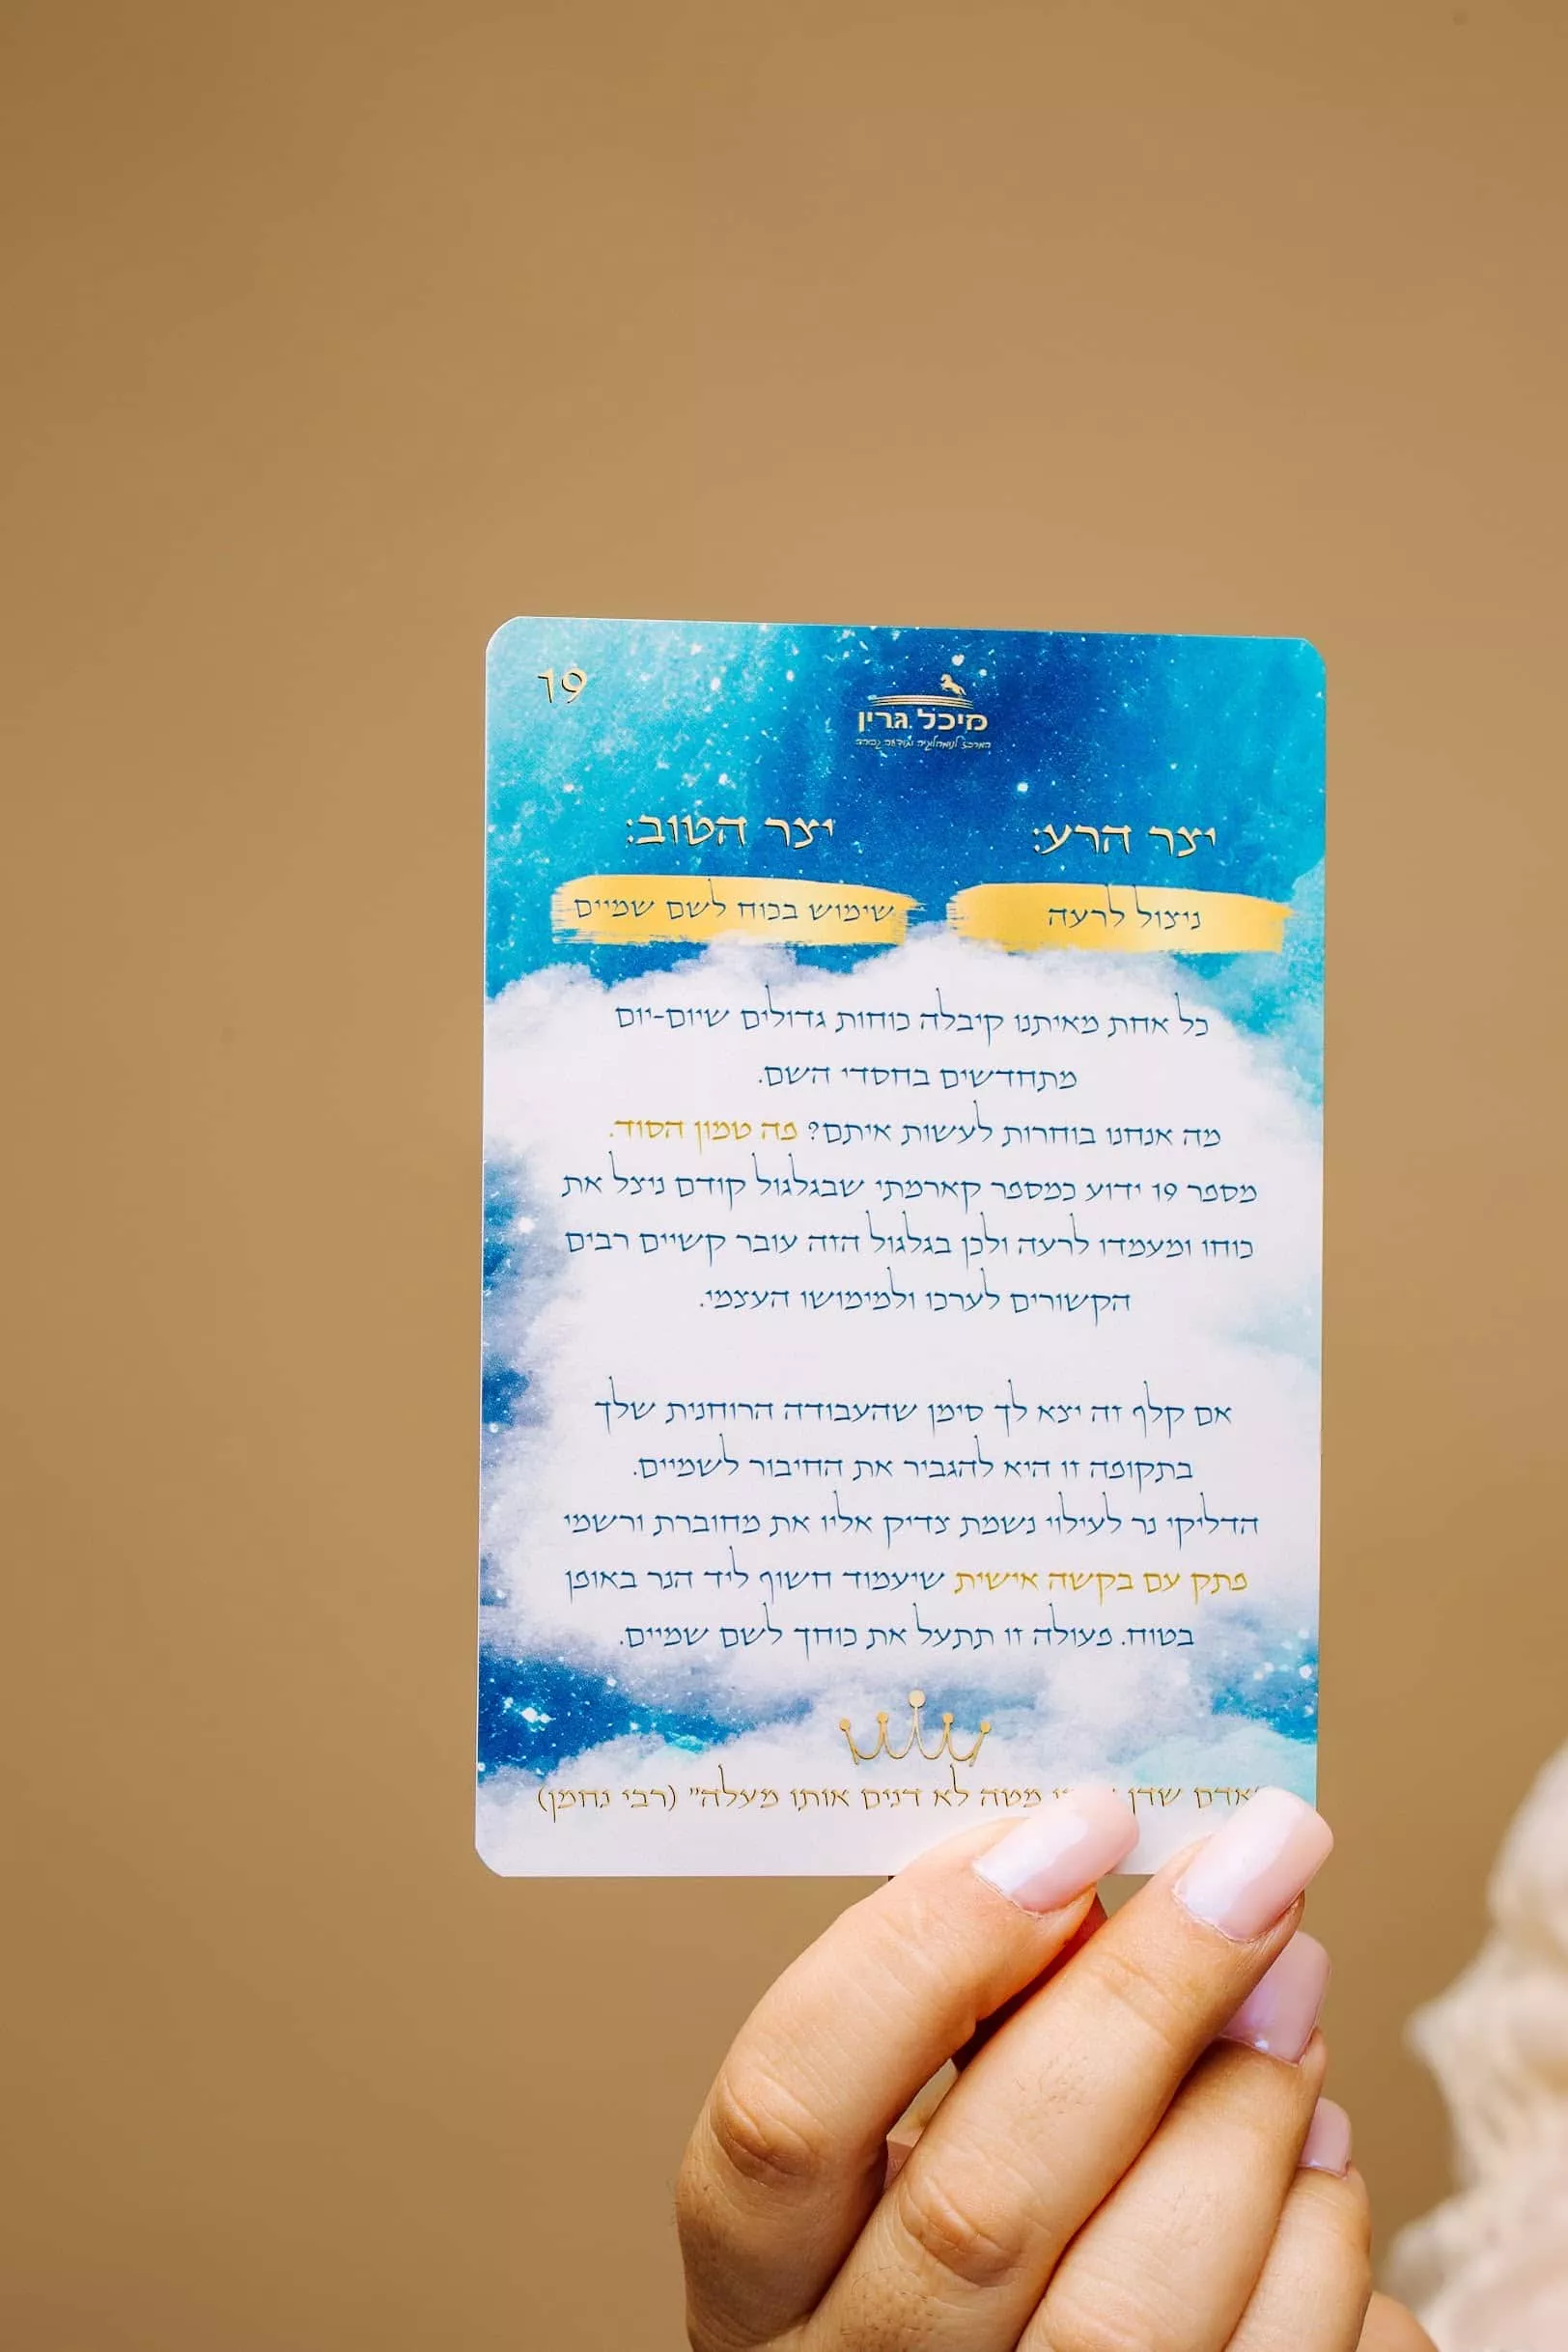 19
מיכל גרין
המרכז לנומרולוגיה ותודעה גבוהה
יצר הרע: יצר הטוב:
ניצול לרעה שימוש בכוח לשם שמיים
כל אחת מאיתנו קיבלה כוחות גדולים שיום-יום
מתחדשים בחסדי השם.
מה אנחנו בוחרות לעשות איתם? פה טמון הסוד.
מספר 19 ידוע כמספר קארמתי שבגלגול קודם ניצל את
כוחו ומעמדו לרעה ולכן בגלגול הזה עובר קשיים רבים
הקשורים לערכו ולמימושו העצמי.
אם קלף זה יצא לך סימן שהעבודה הרוחנית שלך
בתקופה זו היא להגביר את החיבור לשמיים.
הדליקי נר לעילוי נשמת צדיק אליו את מחוברת ורשמי
פתק עם בקשה אישית שיעמוד חשוף ליד הנר באופן
בטוח. פעולה זו תתעל את כוחך לשם שמיים.
"אדם שדן מטה לא דנים אותו מעלה" (רבי נחמן)